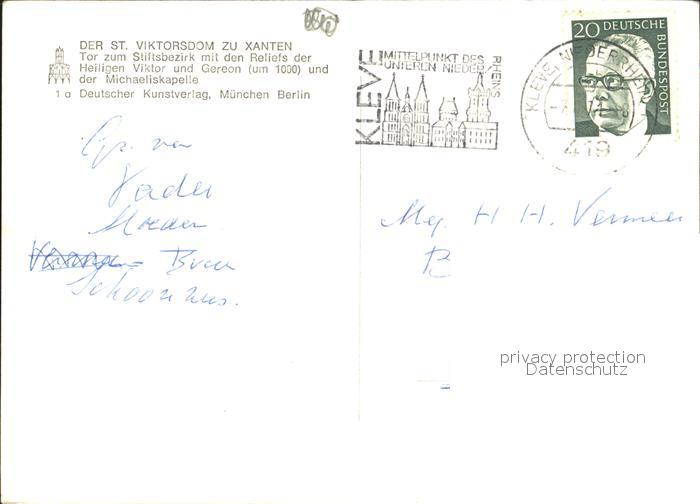 DER ST. VIKTORSDOM ZU XANTEN
Tor zum Stiftsbezirk mit den Reliefs der
Heiligen Viktor und Gereon (um 1000) und
der Michaeliskapelle
1 a Deutscher Kunstverlag, München Berlin
Gr. van
Vader
Moeder
Broer
Schoonzus.
KLEVE
MITTELPUNKT DES
UNTEREN NIEDER
RHEINS
KLEVE, NIEDERRHEIN
419
20 DEUTSCHE
BUNDESPOST
Mej. H H. Vermeer
B
privacy protection
Datenschutz